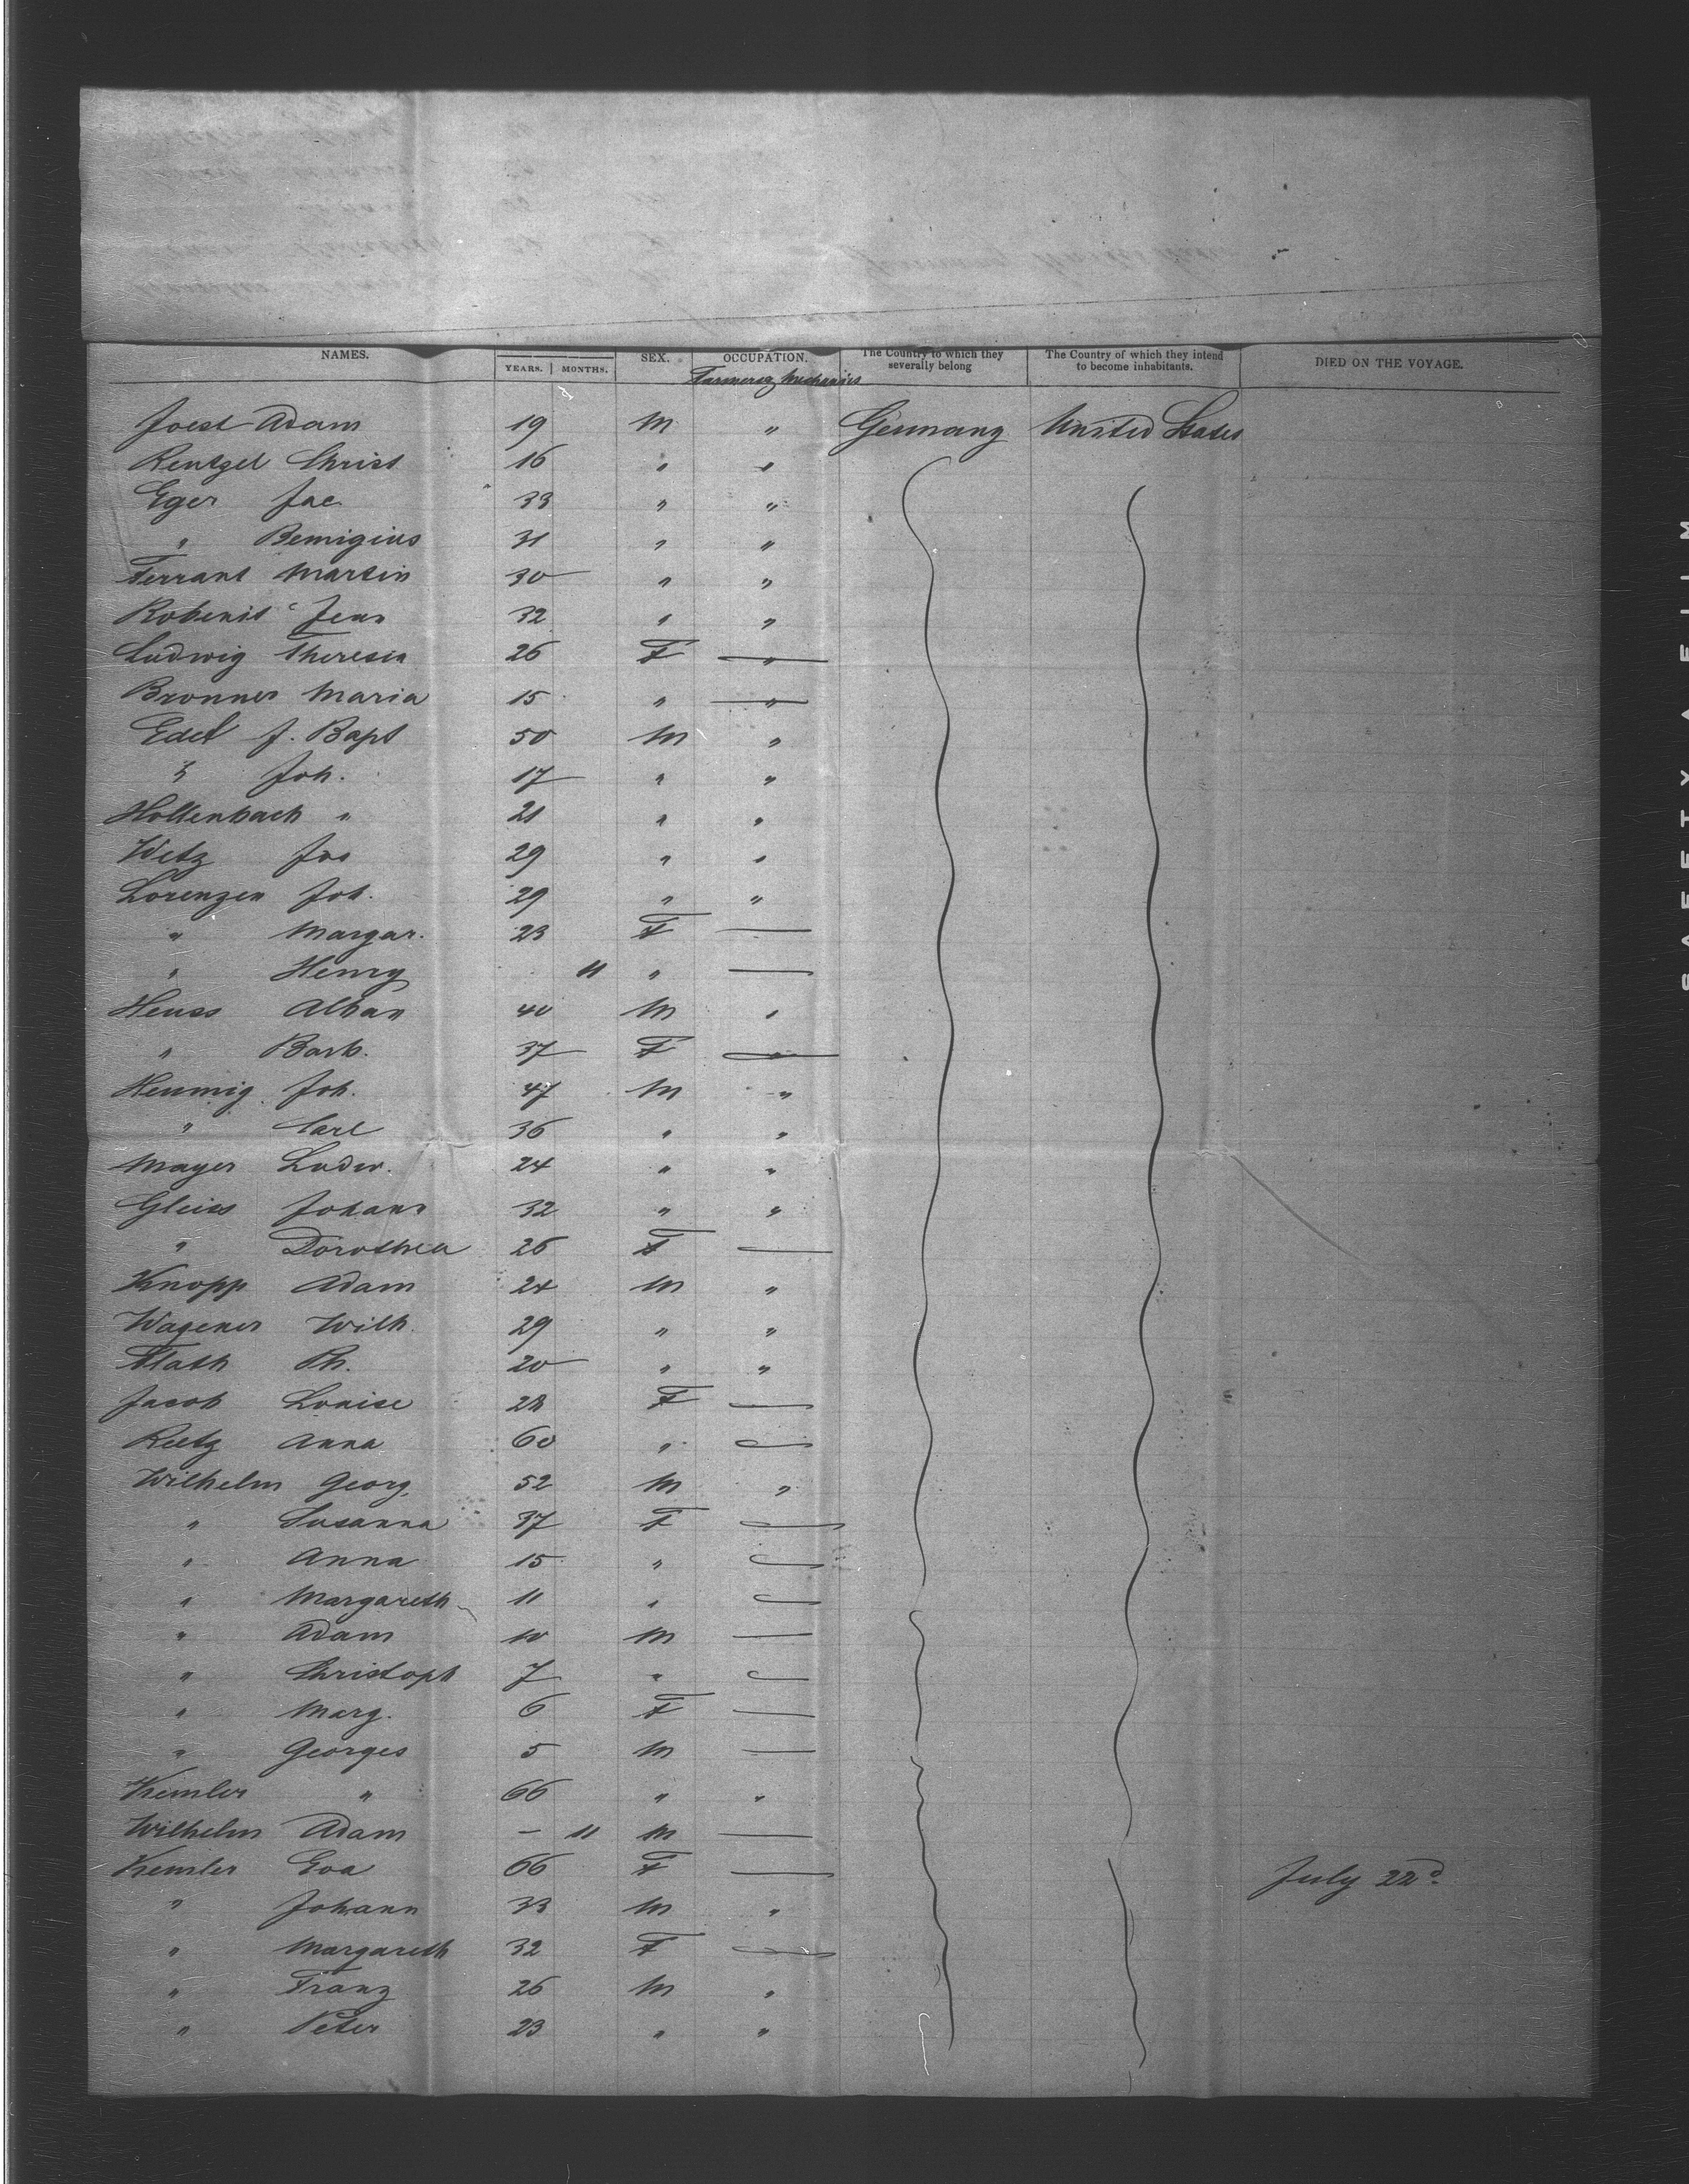 NAMES. YEARS. MONTHS. SEX. OCCUPATION. The Country to which they severally belong The Country of which they intend to become inhabitants. DIED ON THE VOYAGE.
Farmers & Mechanics
Joest Adam 19 M " Germany United States
Rentzel Christ 16 " "
Eger Jac 33 " "
" Bemigius 31 " "
Ferrant Martin 30 " "
Robenit Jean 32 " "
Ludwig Theresia 26 F "
Bronner Maria 15 " "
Edel J. Bapt 50 M "
" Joh. 17 " "
Hollenbach " 21 " "
Wetz Jos 29 " "
Lorenzen Joh. 29 " "
" Margar. 23 F —
" Henry 11 " —
Heuss Alban 40 M "
" Barb. 37 F "
Heumig Joh. 47 M "
" Carl 36 " "
Mayer Ludw. 24 " "
Gleiss Johann 32 " "
" Dorothea 26 F —
Knopp Adam 24 M "
Wagener Wilh. 29 " "
Flath Ph. 20 " "
Jacob Louise 28 F —
Reetz Anna 60 " —
Wilhelm Georg 52 M "
" Susanna 37 F —
" Anna 15 " —
" Margareth 11 " —
" Adam 10 M —
" Christoph 7 " —
" Marg. 6 F —
" Georges 5 M —
Kemler " 66 " "
Wilhelm Adam — 11 M —
Kemler Eva 66 F — July 22d.
" Johann 33 M "
" Margareth 32 F —
" Franz 26 M "
" Peter 23 " "
SAFETY FILM